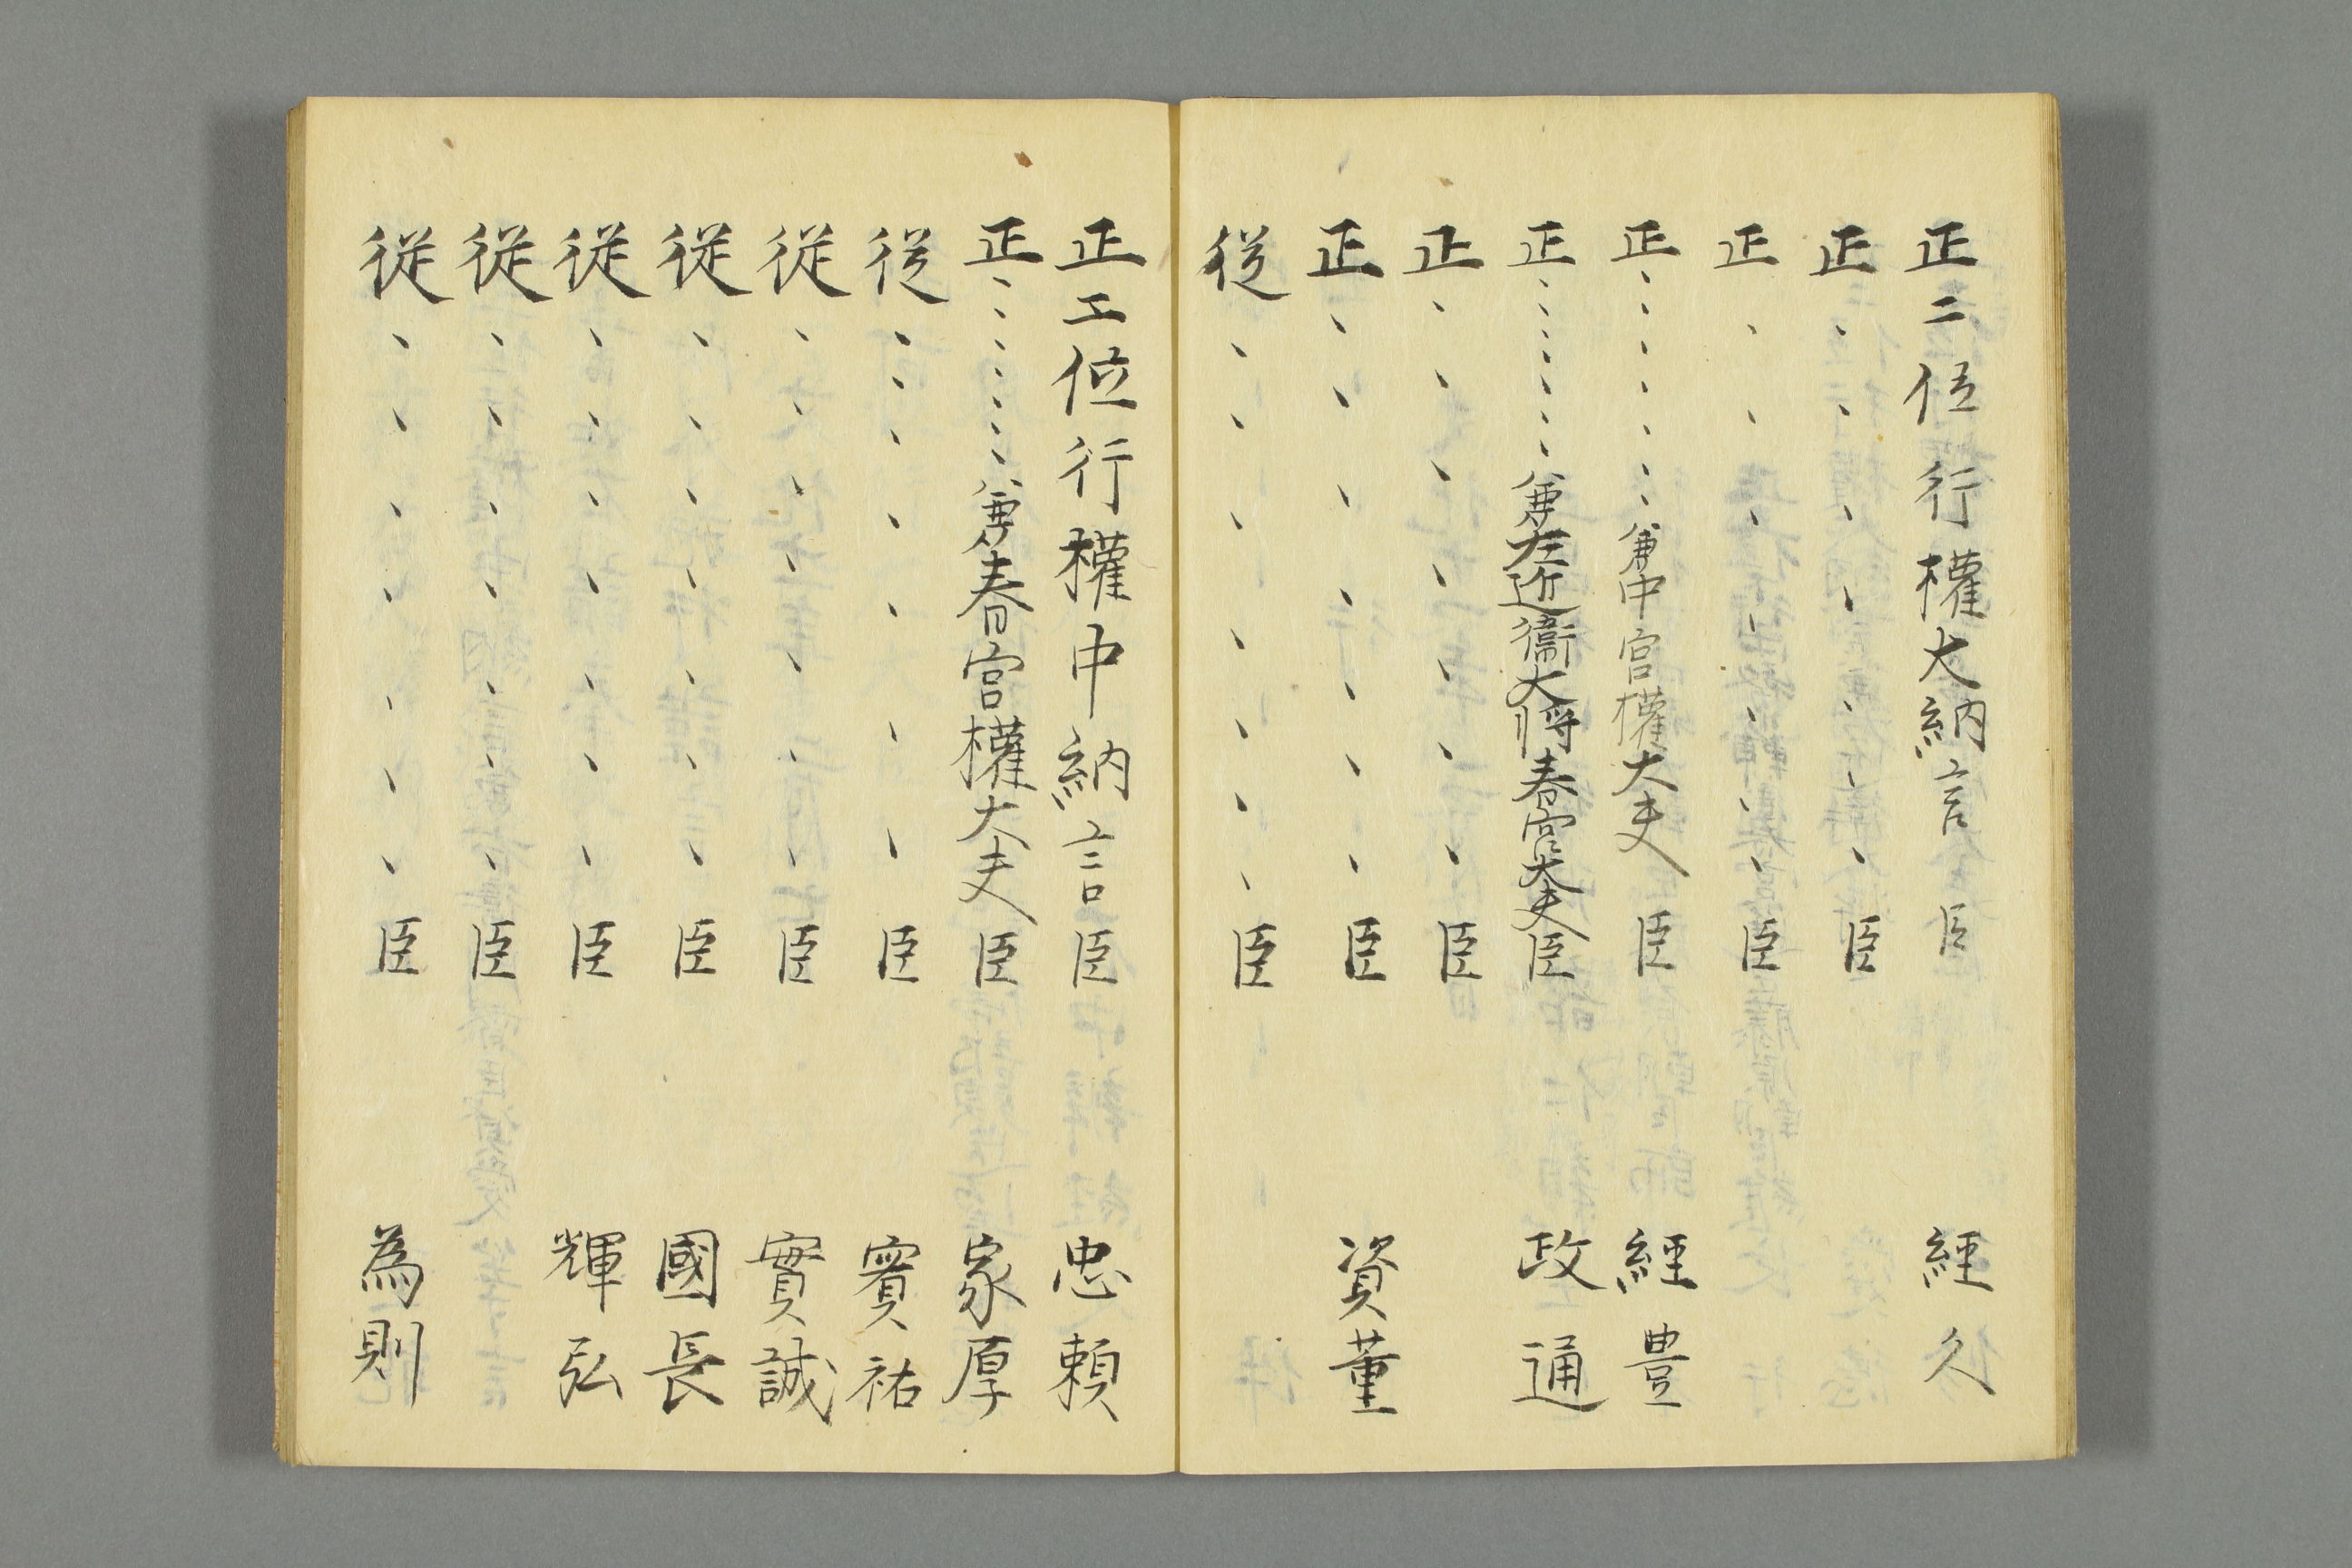 正二位行權大納言臣　經久
正、、、、、、臣
正、、、、、、臣
正、、、、、、、兼中宮權大夫臣　經豊
正、、、、、、、兼左近衞大将春宮大夫臣　政通
正、、、、、、、臣
正、、、、、、、臣　資董
従、、、、、、、臣
正二位行權中納言臣　忠頼
正、、、、、、、兼春宮權大夫臣　家厚
従、、、、、、、臣　實祐
従、、、、、、、臣　實誠
従、、、、、、、臣　國長
従、、、、、、、臣　輝弘
従、、、、、、、臣
従、、、、、、、臣　為則